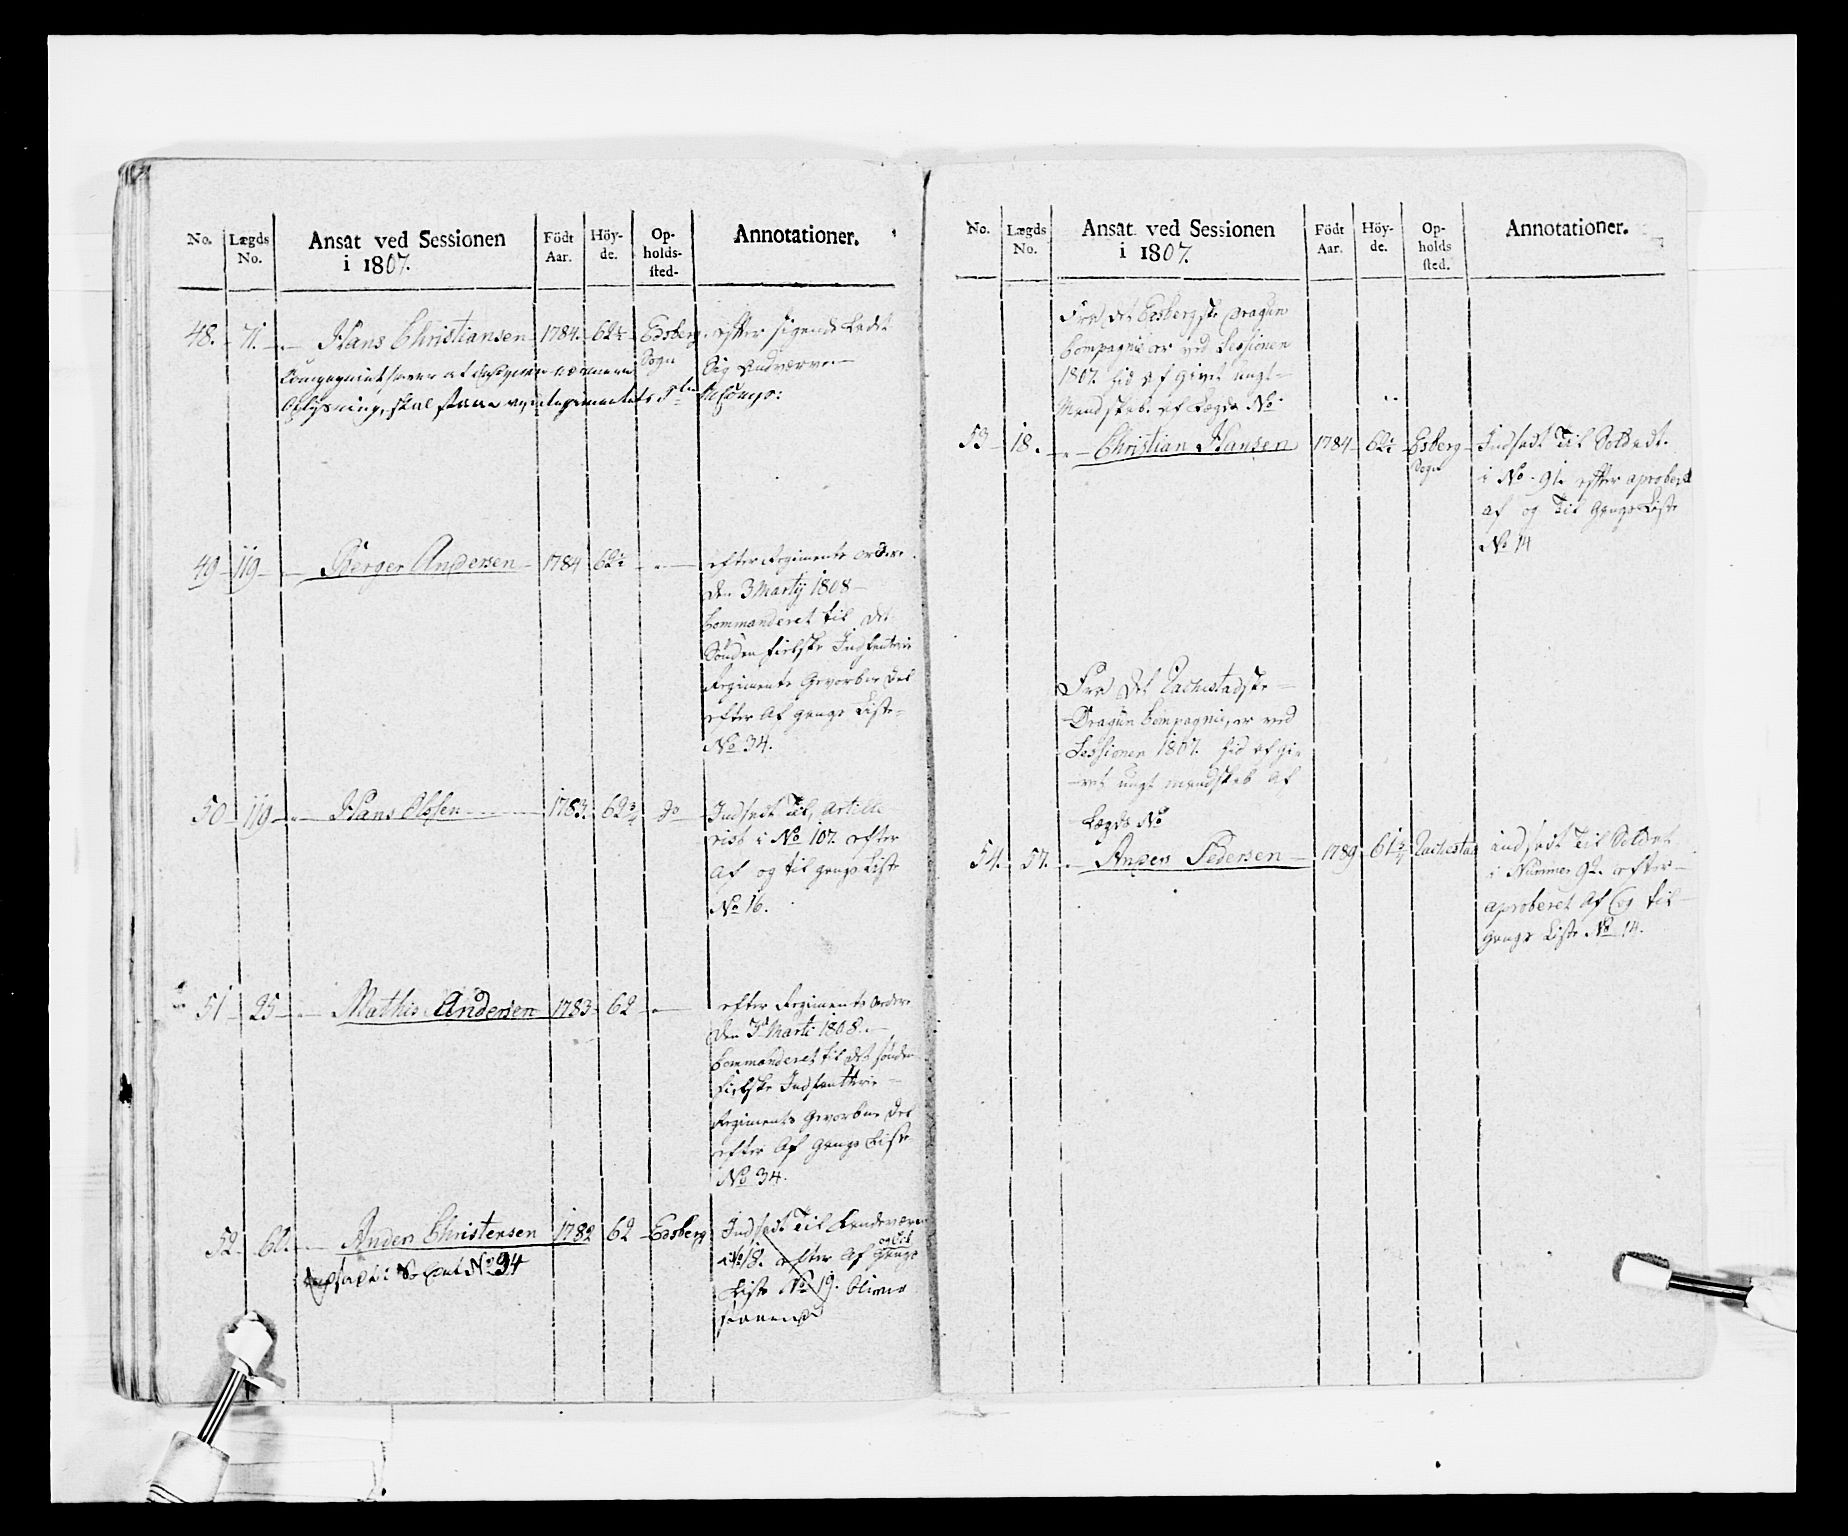 No. Lægds No. Ansat ved Sessionen i 1807. Födt Aar. Höyde. Opholds-sted. Annotationer.
48. 71. Hans Christiansen 1784. 62½ Edsberg Sogn efter sigende Ladet
Sig Andværve
Oplysning, skal staae ved Regimentets
49 119 Børger Andersen 1784 62½ efter Regiments ordre
den 3 Martÿ 1808
Commanderet til det
Sønden fielske Indfanterie
Regiments Gevorbne Deel
efter Af gangs Liste
No 34.
50 119 Hans Olssen 1783. 62¾ do Indsadt til Artille
rist i No 107. efter
Af og til gangs Liste
No 16.
51 25 Mathis Andersen 1783 62 efter Regiments Ordre
den 3d Marti 1808.
Commanderet til det sønden
fielske Indfantterie
Regiments Gevorbne Deel
efter Af Gangs Liste
No 34.
52. 60. Anders Christensen 1782 62 Edsberg Indsadt til Landeværn
i No 18. efter Af og til Gangs
Liste No 19. bliver
staaende
No 94
No. Lægds No. Ansat ved Sessionen i 1807. Födt Aar. Höyde. Opholds sted. Annotationer.
Fra det Edsbergske Dragun
Compagnie er ved Sessionen
1807. hid af givet ungt
Mandskab. af Lægds No
53 18. Christian Hansen 1784 62½ Esberg Sogn Indsadt til Soldadt.
i No 91. efter aproberet
af og til Gangs Liste
No 14
Fra det Rachestadske
Dragun Compagnie, er ved
Sessionen 1807. hid af gi
vet ungt mandskab af
Lægds No
54. 57. Anders Pedersen 1789 61¾ Rachestad indsadt til Soldat
i Nummer 92. efter
aproberet Af og til
gangs Liste No 14.